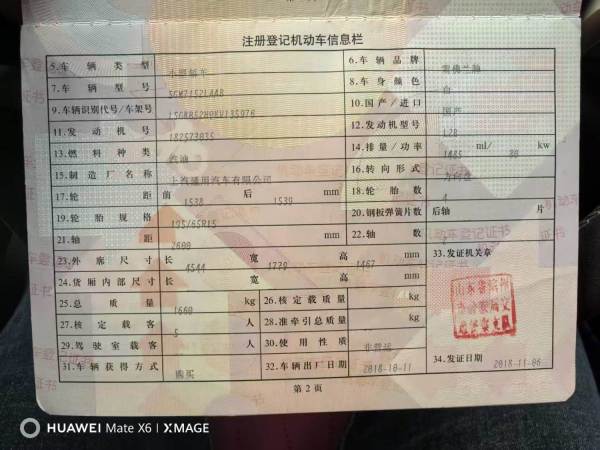 注册登记机动车信息栏
5.车辆类型 小型轿车 6.车辆品牌 雪佛兰牌
7.车辆型号 SGM7152LAAB 8.车身颜色 白
9.车辆识别代号/车架号 10.国产/进口 国产
11.发动机号 182573035 12.发动机型号 L2B
13.燃料种类 汽油 14.排量/功率 1485 ml/ kw
15.制造厂名称 上汽通用汽车有限公司 16.转向形式 方向盘
17.轮距 前 1538 后 1539 mm 18.轮胎数 4
19.轮胎规格 195/65R15 20.钢板弹簧片数 后轴 片
21.轴距 2600 mm 22.轴数
23.外廓尺寸 长 4544 宽 1779 高 1467 mm 33.发证机关章
24.货厢内部尺寸 长 宽 高 mm
25.总质量 1660 kg 26.核定载质量 kg
27.核定载客 5 人 28.准牵引总质量 kg
29.驾驶室载客 人 30.使用性质 非营运
31.车辆获得方式 购买 32.车辆出厂日期 2018-10-11 34.发证日期 2018-11-06
第2页
HUAWEI Mate X6 | XMAGE